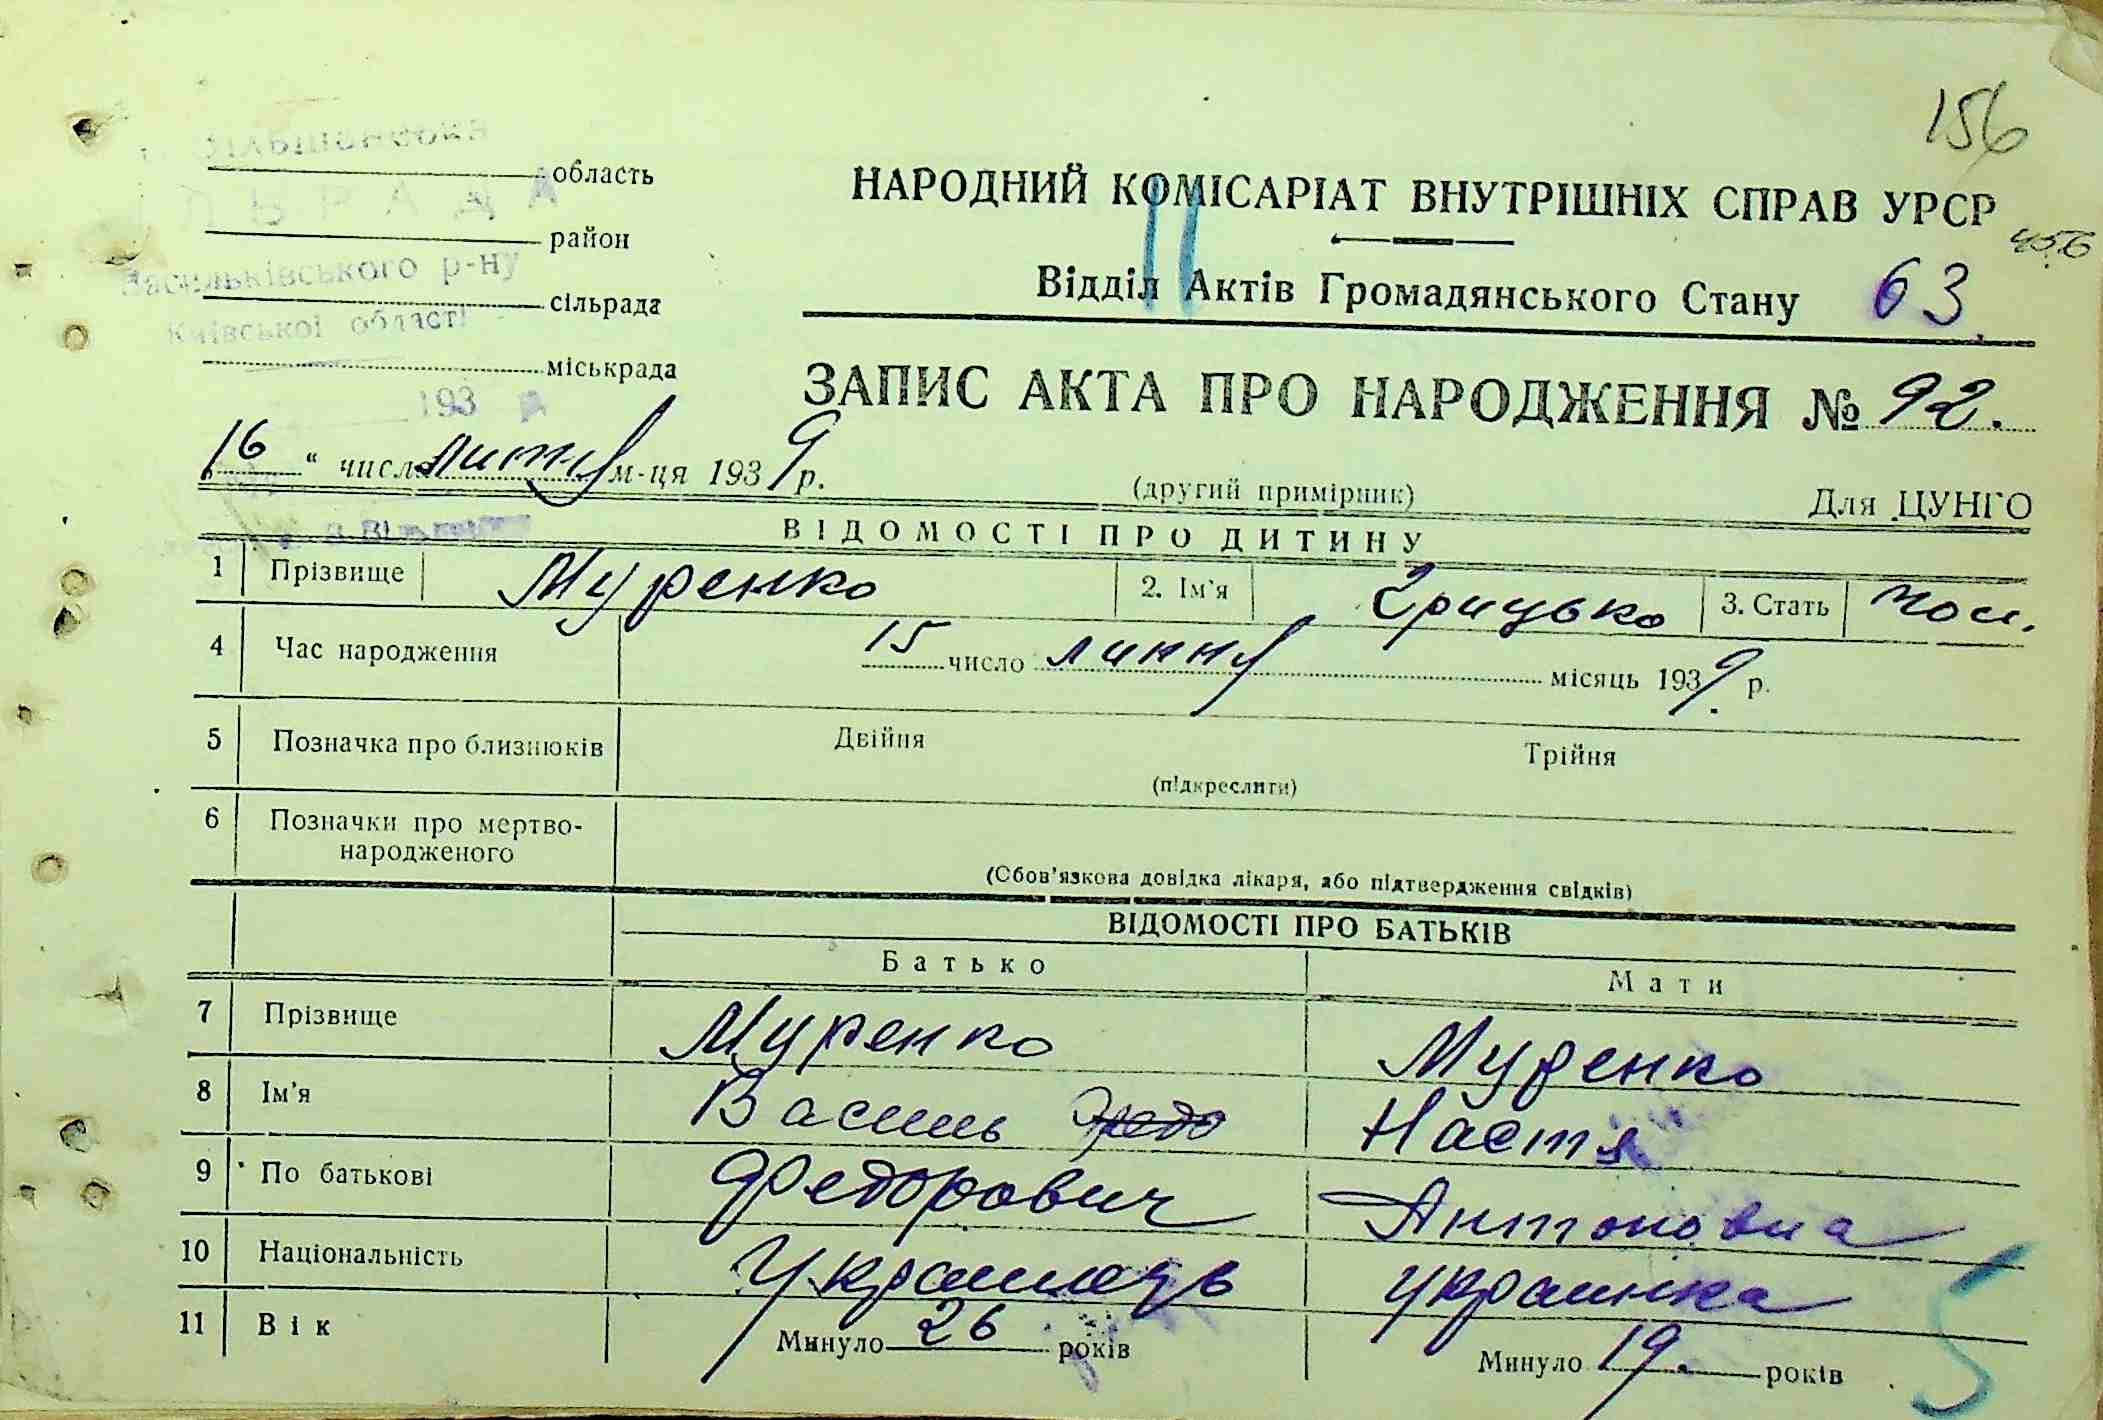 156
область
РАДА
район
Васильківського р-ну
сільрада
Київської області
міськрада
193
НАРОДНИЙ КОМІСАРІАТ ВНУТРІШНІХ СПРАВ УРСР
456
Відділ Актів Громадянського Стану 63
ЗАПИС АКТА ПРО НАРОДЖЕННЯ № 92.
"16" число липня м-ця 1939 р.
(другий примірник) Для ЦУНГО
ВІДОМОСТІ ПРО ДИТИНУ
1 Прізвище Муренко 2. Ім'я Грицько 3. Стать чол.
4 Час народження 15 число липня місяць 1939 р.
5 Позначка про близнюків Двійня Трійня
(підкреслити)
6 Позначки про мертво-
народженого
(Обов'язкова довідка лікаря, або підтвердження свідків)
ВІДОМОСТІ ПРО БАТЬКІВ
Батько Мати
7 Прізвище Муренко Муренко
8 Ім'я Василь Федо Настя
9 По батькові Федорович Антоновна
10 Національність Українець українка
11 Вік Минуло 26 років Минуло 19. років
5